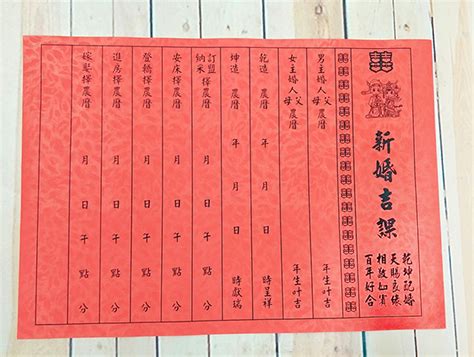 囍
新婚吉課
乾坤配婚
天賜良緣
相敬如賓
百年好合
男主婚人父母農曆 年生叶吉
女主婚人父母農曆 年生叶吉
乾造 農曆 年 月 日 時呈祥
坤造 農曆 年 月 日 時獻瑞
訂盟納采擇農曆 月 日 午 點 分
安床擇農曆 月 日 午 點 分
登轎擇農曆 月 日 午 點 分
進房擇農曆 月 日 午 點 分
嫁娶擇農曆 月 日 午 點 分